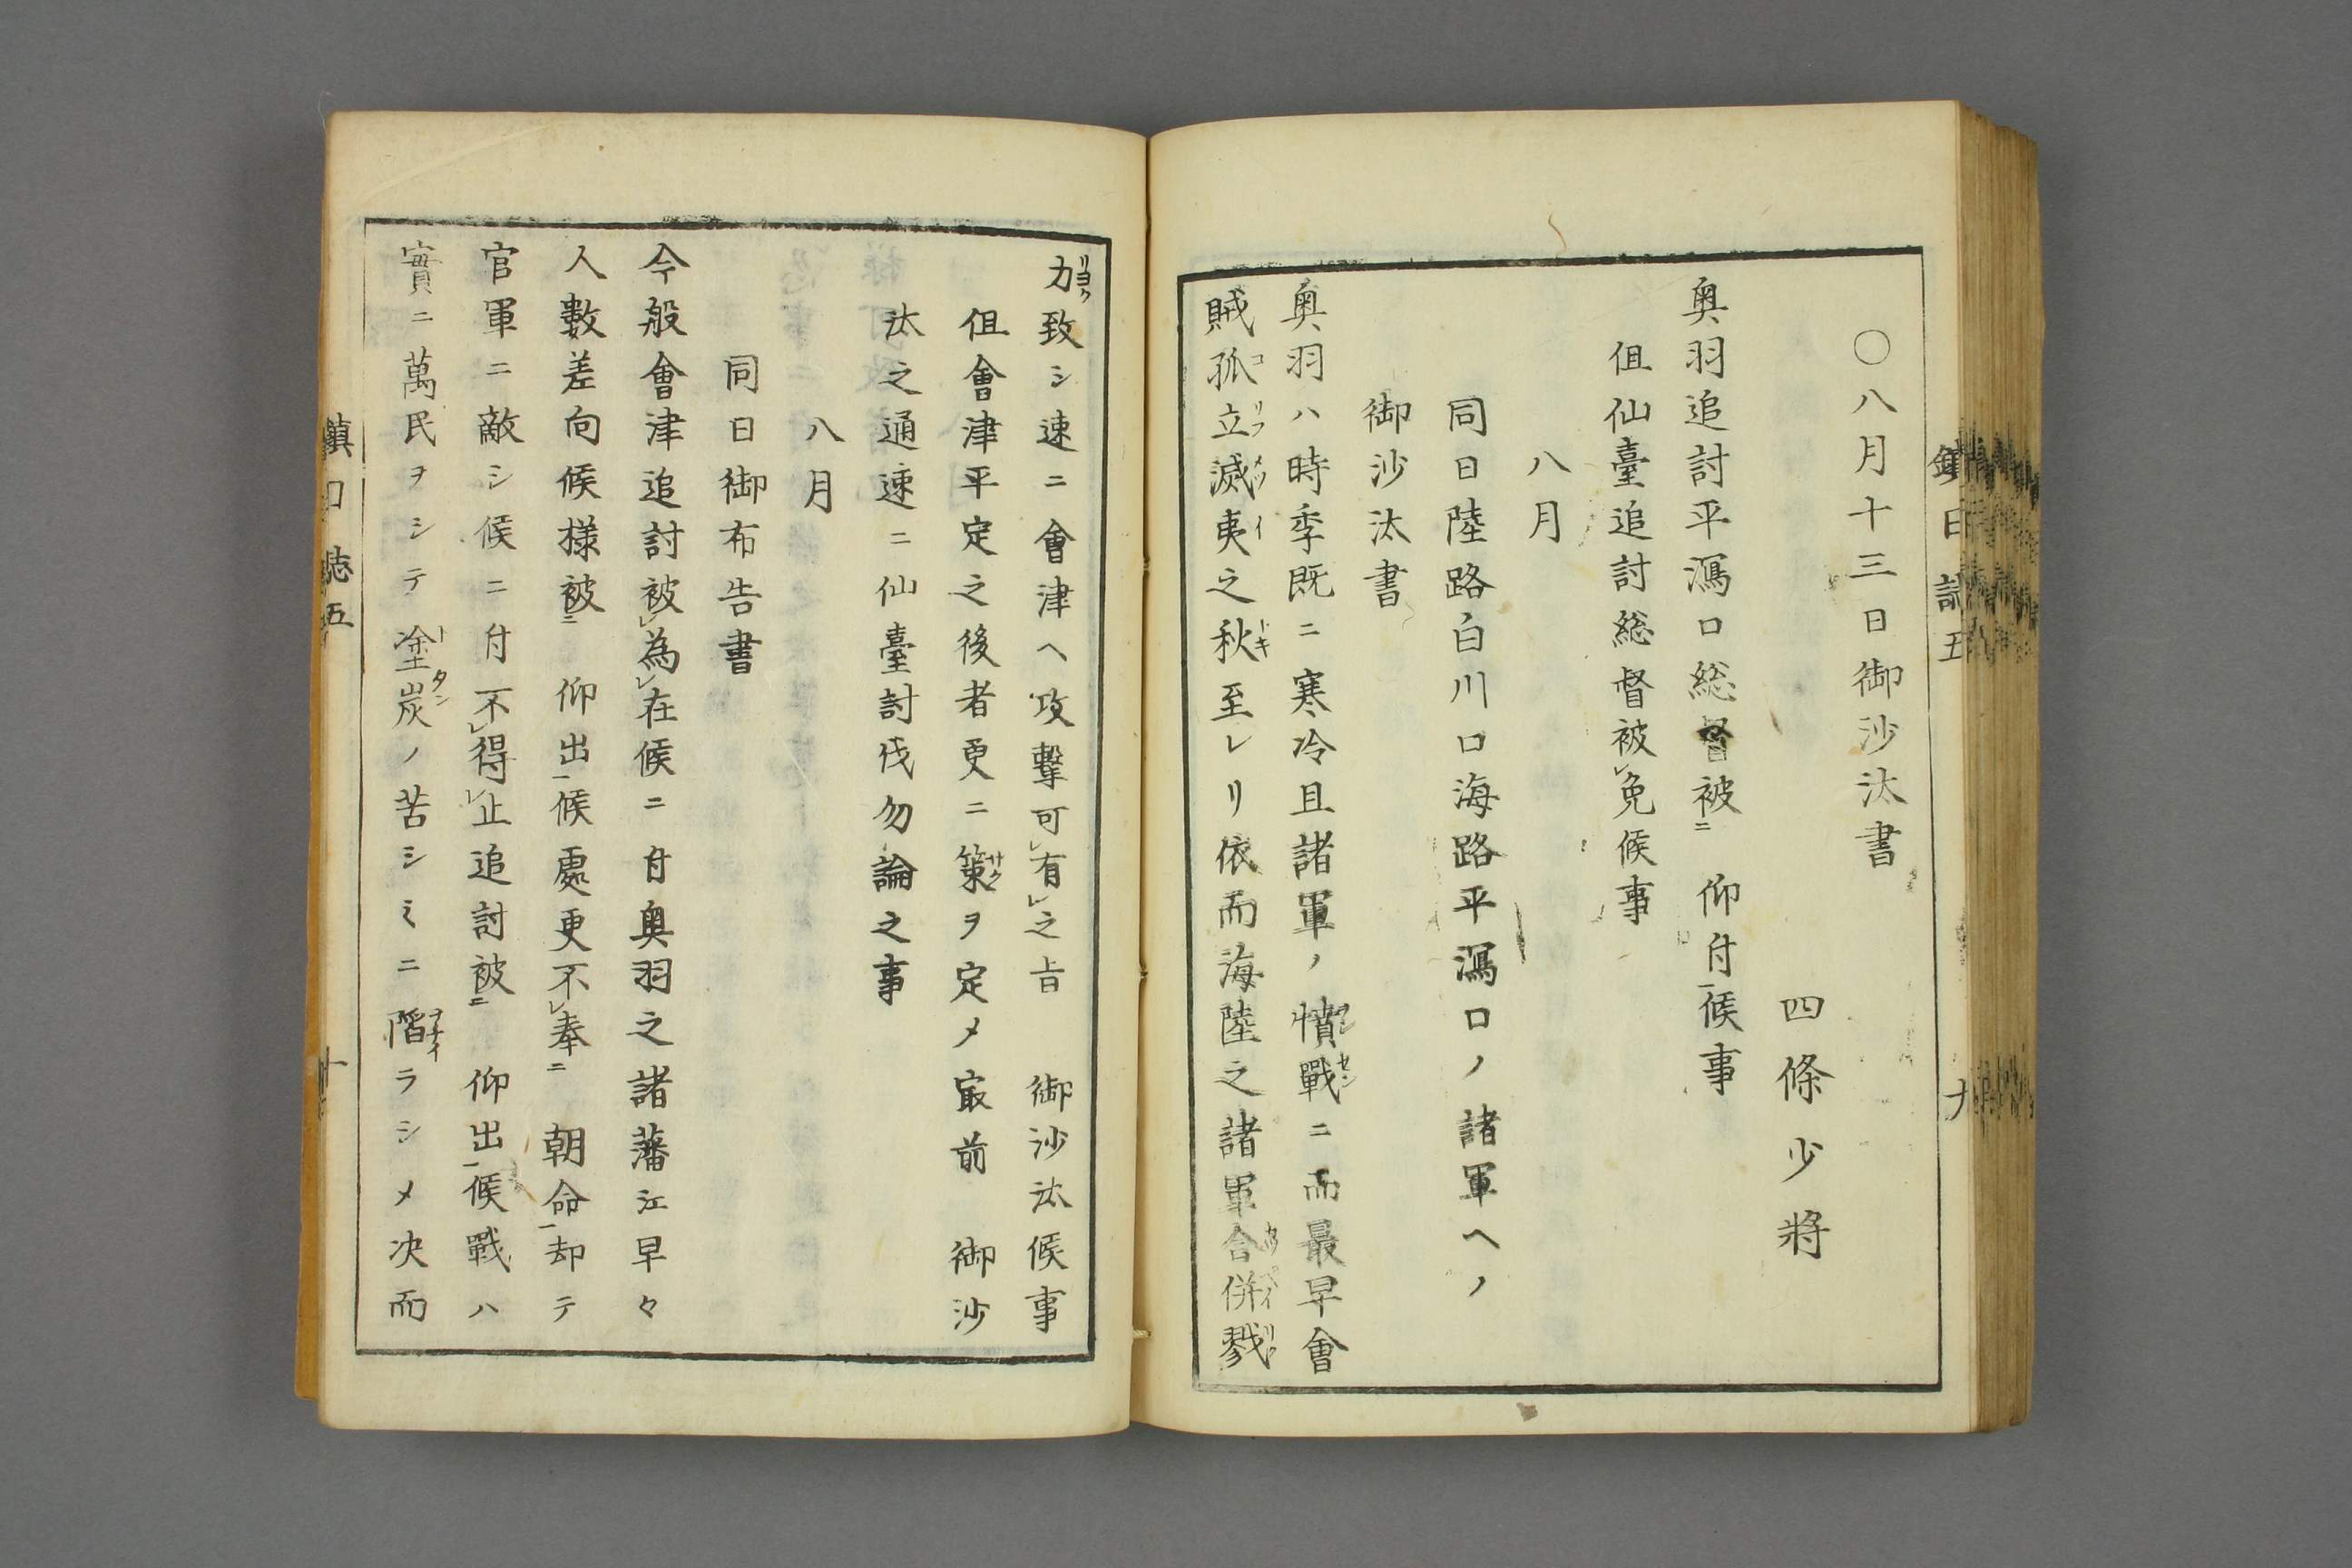 〇八月十三日御沙汰書
四條少將
奥羽追討平潟口総督被ニ　仰付一候事
但仙臺追討総督被レ免候事
八月
同日陸路白川口海路平潟口ノ諸軍ヘノ
御沙汰書
奥羽ハ時季既ニ寒冷且諸軍ノ憤戰ニ而最早會
賊孤立滅夷之秋至レリ依而海陸之諸軍合併戮
鎮日誌五
九
力致シ速ニ會津ヘ攻撃可レ有レ之旨　御沙汰候事
但會津平定之後者更ニ策ヲ定メ㝡前　御沙
汰之通速ニ仙臺討伐勿論之事
八月
同日御布告書
今般會津追討被レ為レ在候ニ付奥羽之諸藩江早々
人數差向候様被ニ　仰出一候處更不レ奉ニ　朝命一却テ
官軍ニ敵シ候ニ付不レ得レ止追討被ニ　仰出一候戰ハ
實ニ萬民ヲシテ塗炭ノ苦シミニ陷ラシメ決而
鎮日誌五
十